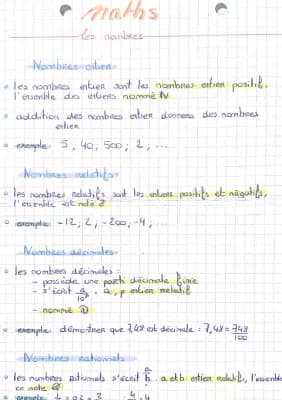 maths
les nombres
Nombres entier
• les nombres entier sont les nombres entier positif.
l'ensemble des entiers nommé ℕ
• addition des nombres entier donnera des nombres
entier
• exemple 5, 40, 500, 2, ...
Nombres relatifs
• les nombres relatifs sont les entiers positifs et négatifs,
l'ensemble est noté ℤ
• exemple -12, 2, -200, -4,
Nombres décimales
• les nombres décimales :
- possède une parti décimale finie
- s'écrit a/10ᵖ . a, p entier relatif
- nommé 𝔻
• exemple démontrer que 7,48 est décimale : 7,48 = 748/100
Nombres rationnels
• les nombres rationnels s'écrit a/b . a et b entier relatif, l'ensemble
ce note ℚ